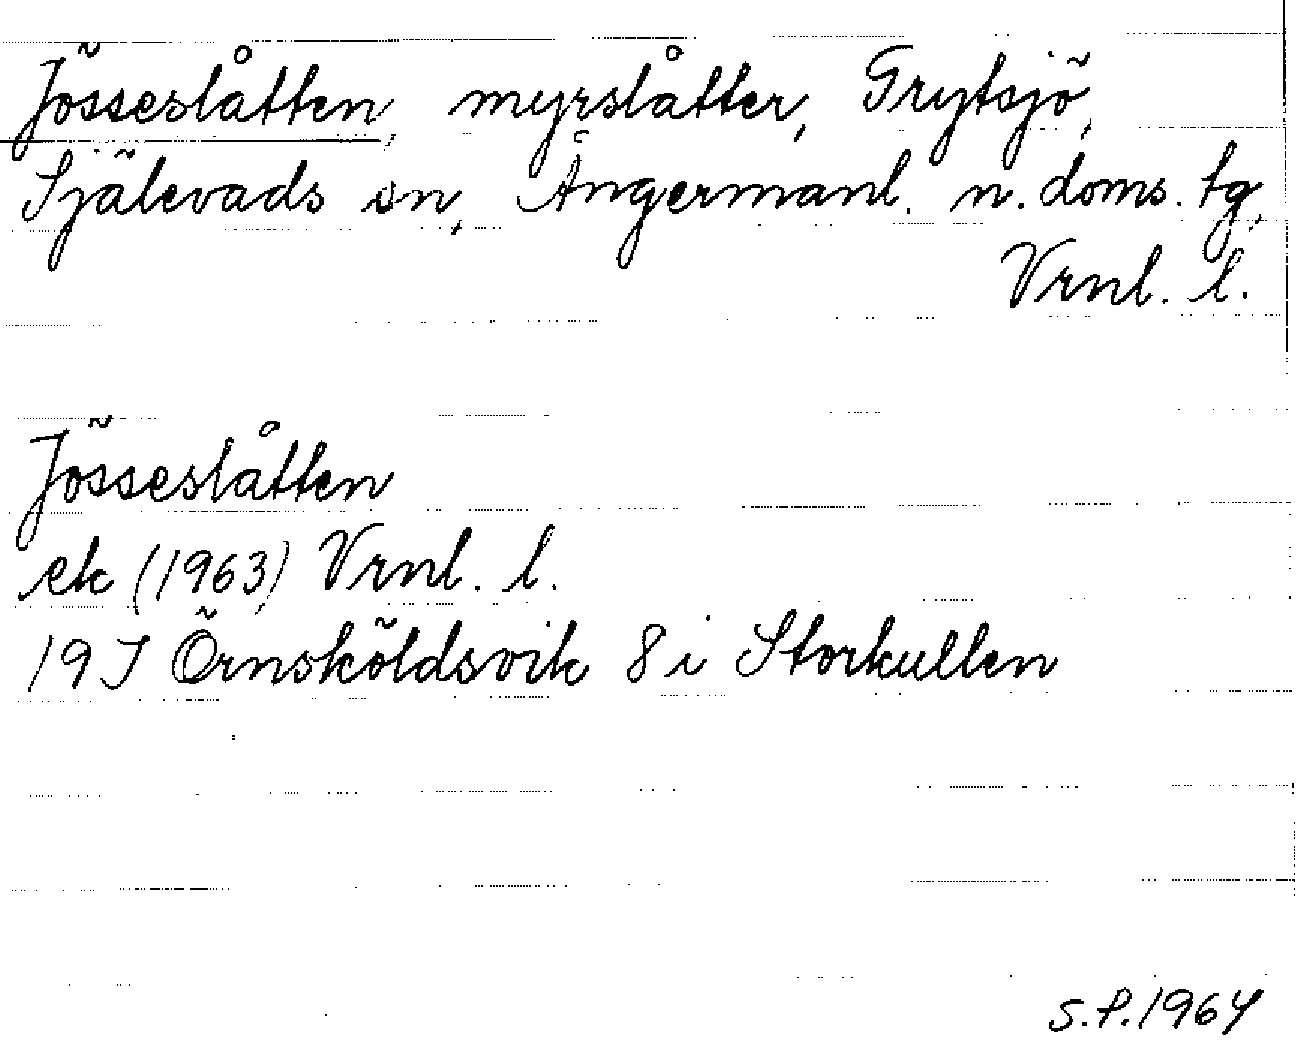 Jösseslåtten, myrslåtter, Grytsjö,
Själevads sn, Ångermanl. n. doms. tg,
Vrnl. l.
Jösseslåtten
ek (1963) Vrnl. l.
19J Örnsköldsvik 8i Storkullen
S.P. 1964